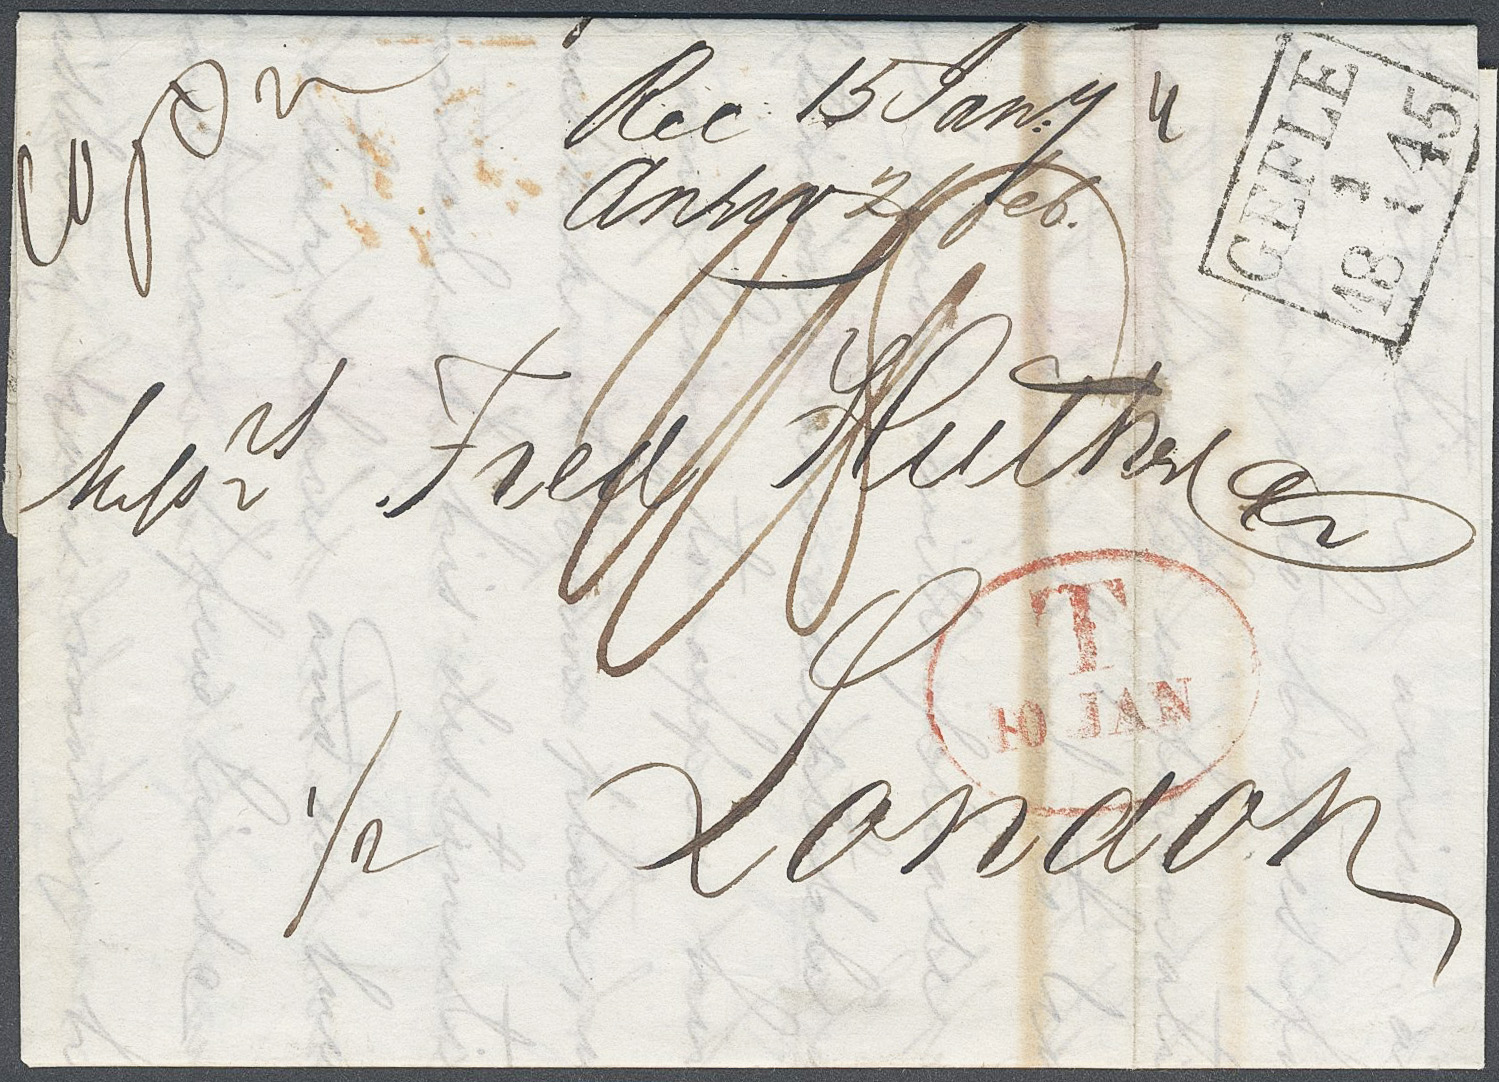 Rec 15 Jany
Answr 2 Feb.
GEFLE
1
18 45
Messrs Fredk Huth & Co
T
10 JAN
London
1/2